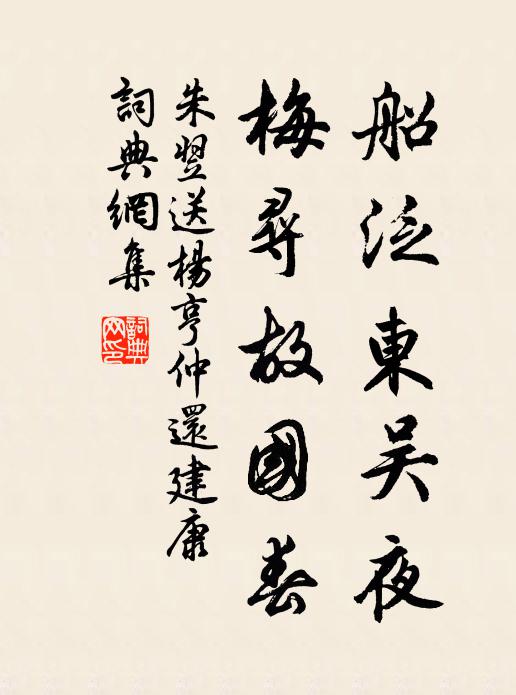 船泛東吳夜
梅尋故國春
朱翌送楊亨仲還建康
詞典網集
詞典网印